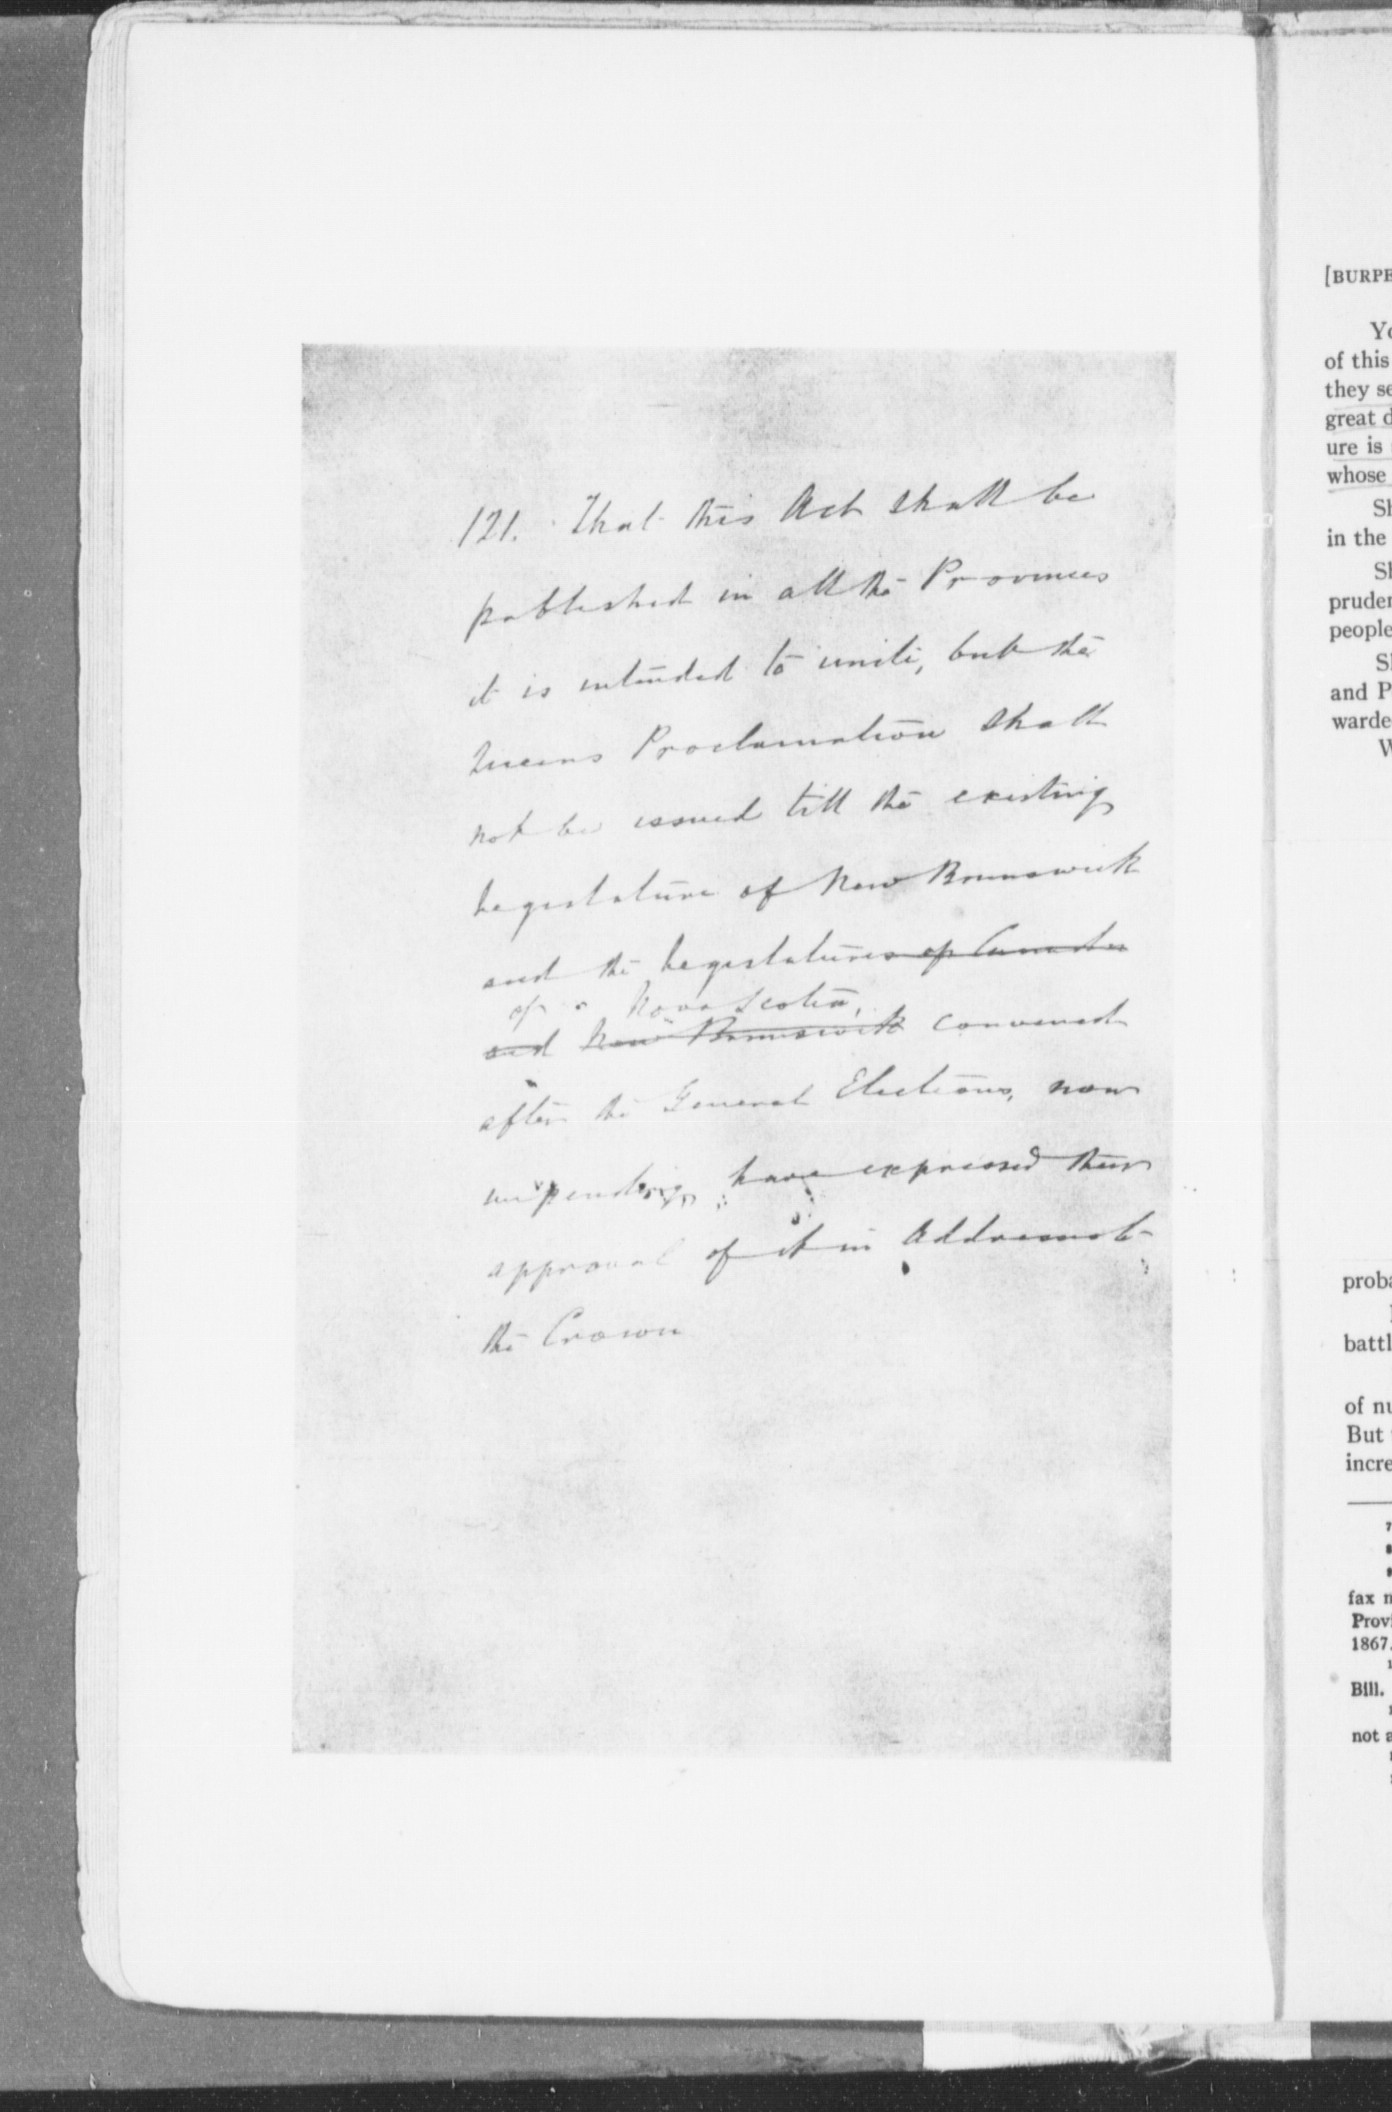 121. That this Act shall be
published in all the Provinces
it is intended to unite, but the
Queens Proclamation shall
not be issued till the existing
Legislature of New Brunswick
and the Legislatures of Canada
of Nova Scotia,
and New Brunswick convened
after the General Elections, now
impending, have expressed their
approval of it in Addresses to
the Crown
[BURPE
Yo
of this
they se
great d
ure is
whose
Sh
in the
Sh
pruden
people
Sh
and P
warde
W
proba
battl
of nu
But
incre
fax n
Provi
1867.
Bill.
not a